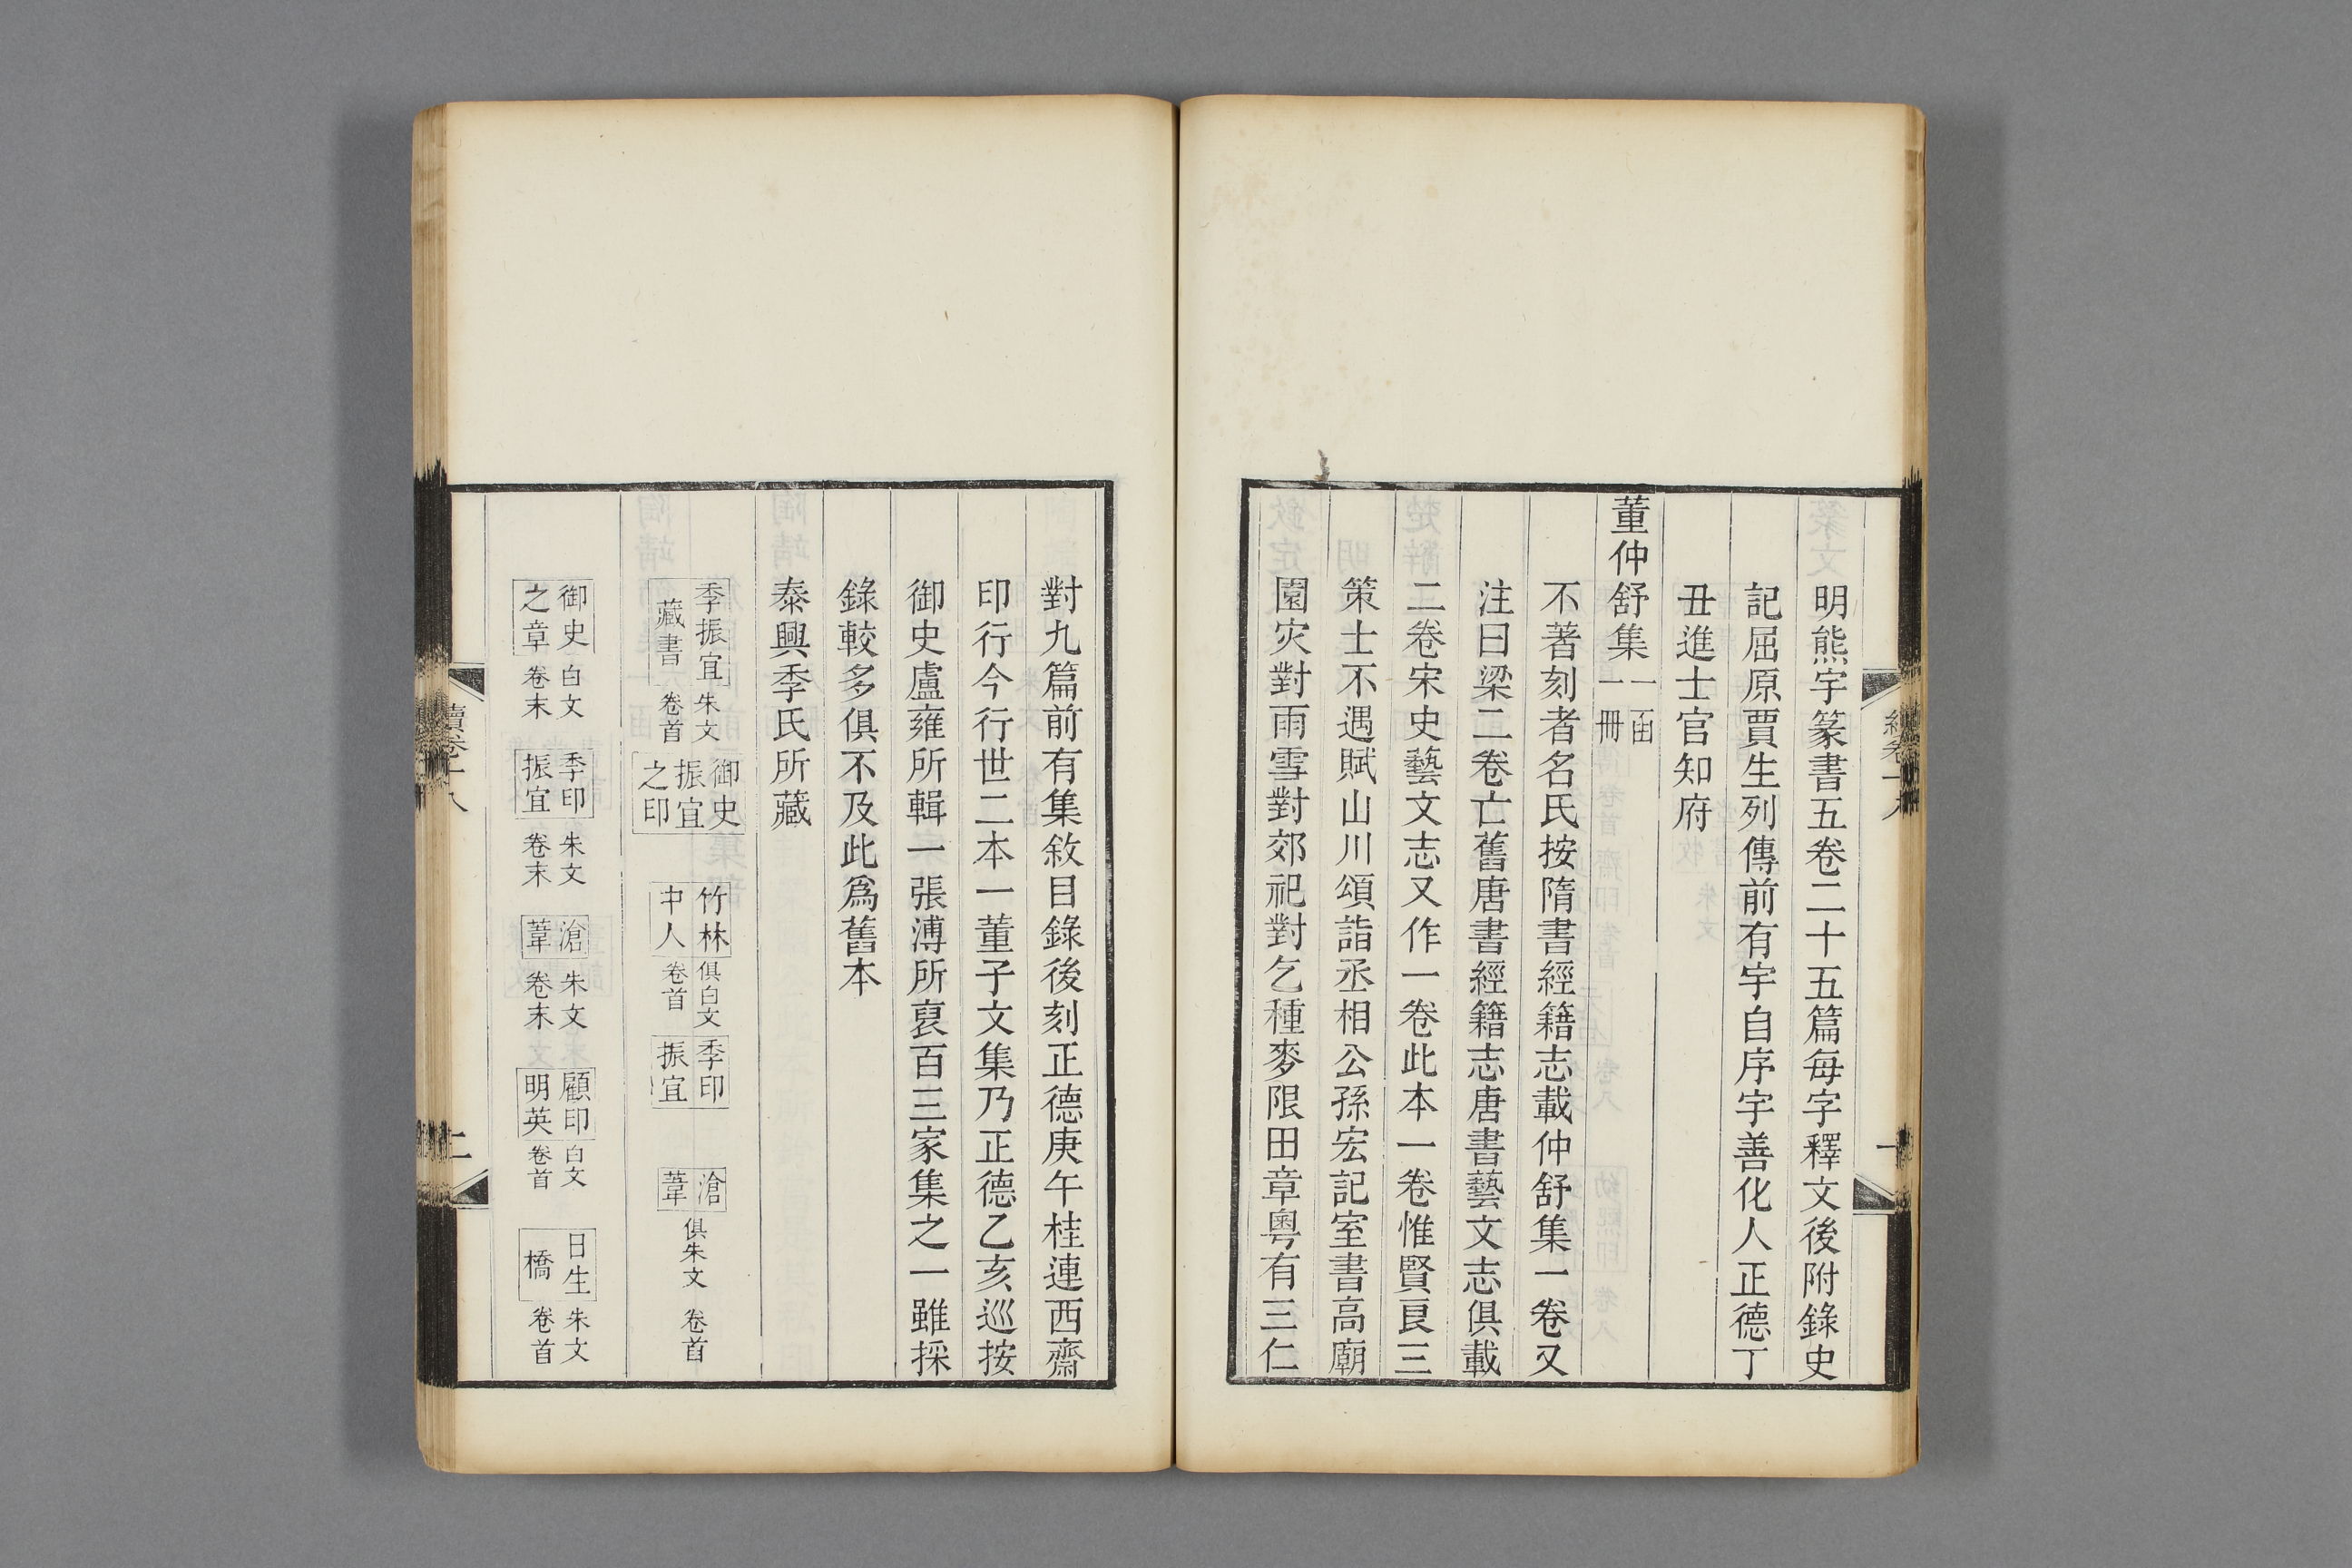 明熊宇篆書五卷二十五篇每字釋文後附錄史
記屈原賈生列傳前有宇自序宇善化人正德丁
丑進士官知府
董仲舒集一函一冊
不著刻者名氏按隋書經籍志載仲舒集一卷又
注曰梁二卷亡舊唐書經籍志唐書藝文志俱載
二卷宋史藝文志又作一卷此本一卷惟賢良三
策士不遇賦山川頌詣丞相公孫宏記室書高廟
園灾對雨雪對郊祀對乞種麥限田章粵有三仁
對九篇前有集敘目錄後刻正德庚午桂連西齋
印行今行世二本一董子文集乃正德乙亥巡按
御史盧雍所輯一張溥所裒百三家集之一雖採
錄較多俱不及此爲舊本
泰興季氏所藏
季振宜藏書 朱文卷首 御史振宜之印 竹林中人 俱白文卷首 季印振宜 滄葦 俱朱文 卷首
御史之章 白文卷末 季印振宜 朱文卷末 滄葦 朱文卷末 顧印明英 白文卷首 日生橋 朱文卷首
續卷十八
二